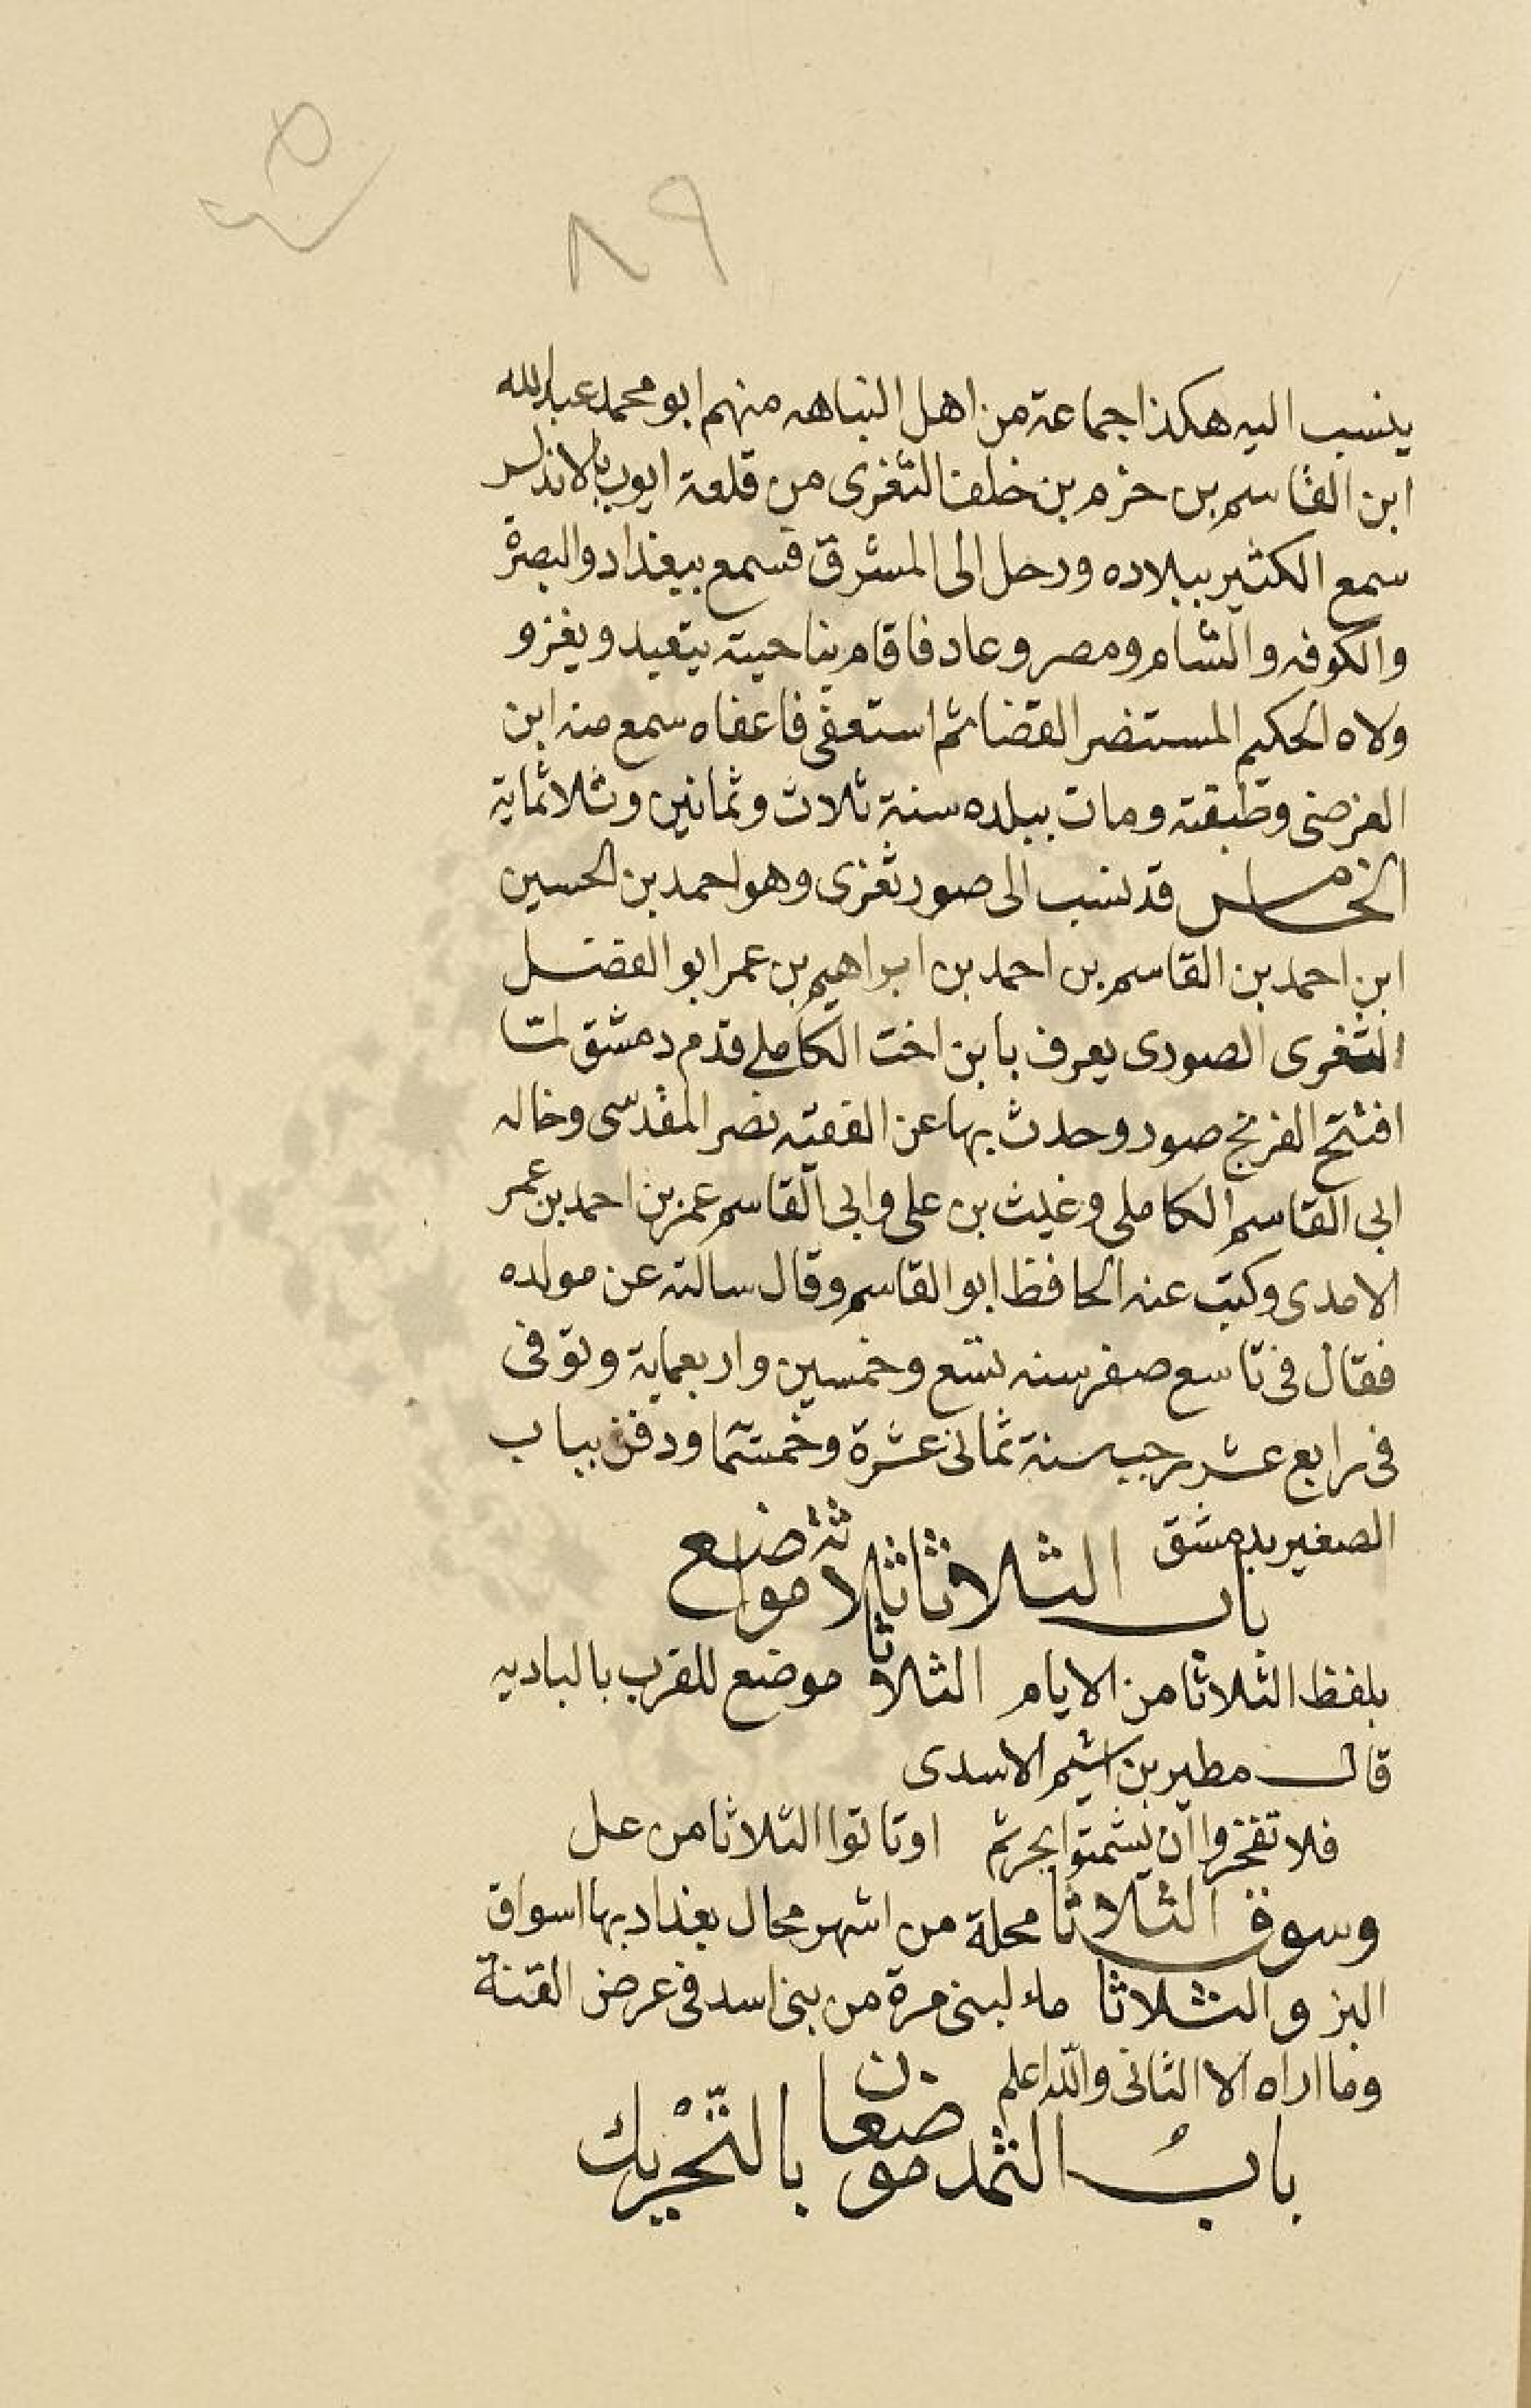 ٨٩
ينسب اليه هكذا جماعة من اهل النباهه منهم ابو محمد عبدالله
ابن القاسم بن حزم بن خلف الثغرى من قلعة ايوب بالاندلس
سمع الكثير ببلاده ورحل الى المشرق فسمع ببغداد والبصرة
والكوفه والشام ومصر وعاد فاقام بناحيته يتعبد ويغزو
ولاه الحكيم المستنصر القضا ثم استعفى فاعفاه سمع منه ابن
الفرضى وطبقته ومات ببلده سنة ثلاث وثمانين وثلاثماية
الخامس قد نسب الى صور ثغرى وهو احمد بن الحسين
ابن احمد بن القاسم بن احمد بن ابراهيم بن عمر ابو الفضل
الثغرى الصورى يعرف بابن اخت الكاملى قدم دمشق لما
افتتح الفرنج صور وحدث بها عن الفقيه نصر المقدسى وخاله
ابى القاسم الكاملى وغيث بن على وابى القاسم عمر بن احمد بن عمر
الامدى وكتب عنه الحافظ ابو القاسم وقال سالته عن مولده
فقال فى تاسع صفر سنه تسع وخمسين واربعماية وتوفى
فى رابع عشر رجب سنة ثمانى عشرة وخمسما ودفن بباب
الصغير بدمشق
باب الثلاثا ثلاثة مواضع
بلفظ الثلاثا من الايام الثلاثا موضع للقرب بالباديه
قال مطير بن اشيم الاسدى
فلا تفخروا ان يشمتوا بحرثم اوتاتوا الثلاثا من عل
وسوق الثلاثا محلة من اشهر محال بغداد بها اسواق
البز والثلاثا ماء لبنى مرة من بنى اسد فى عرض القنة
وما اراه الا الثانى والله اعلم
باب الثمد موضعان بالتحريك